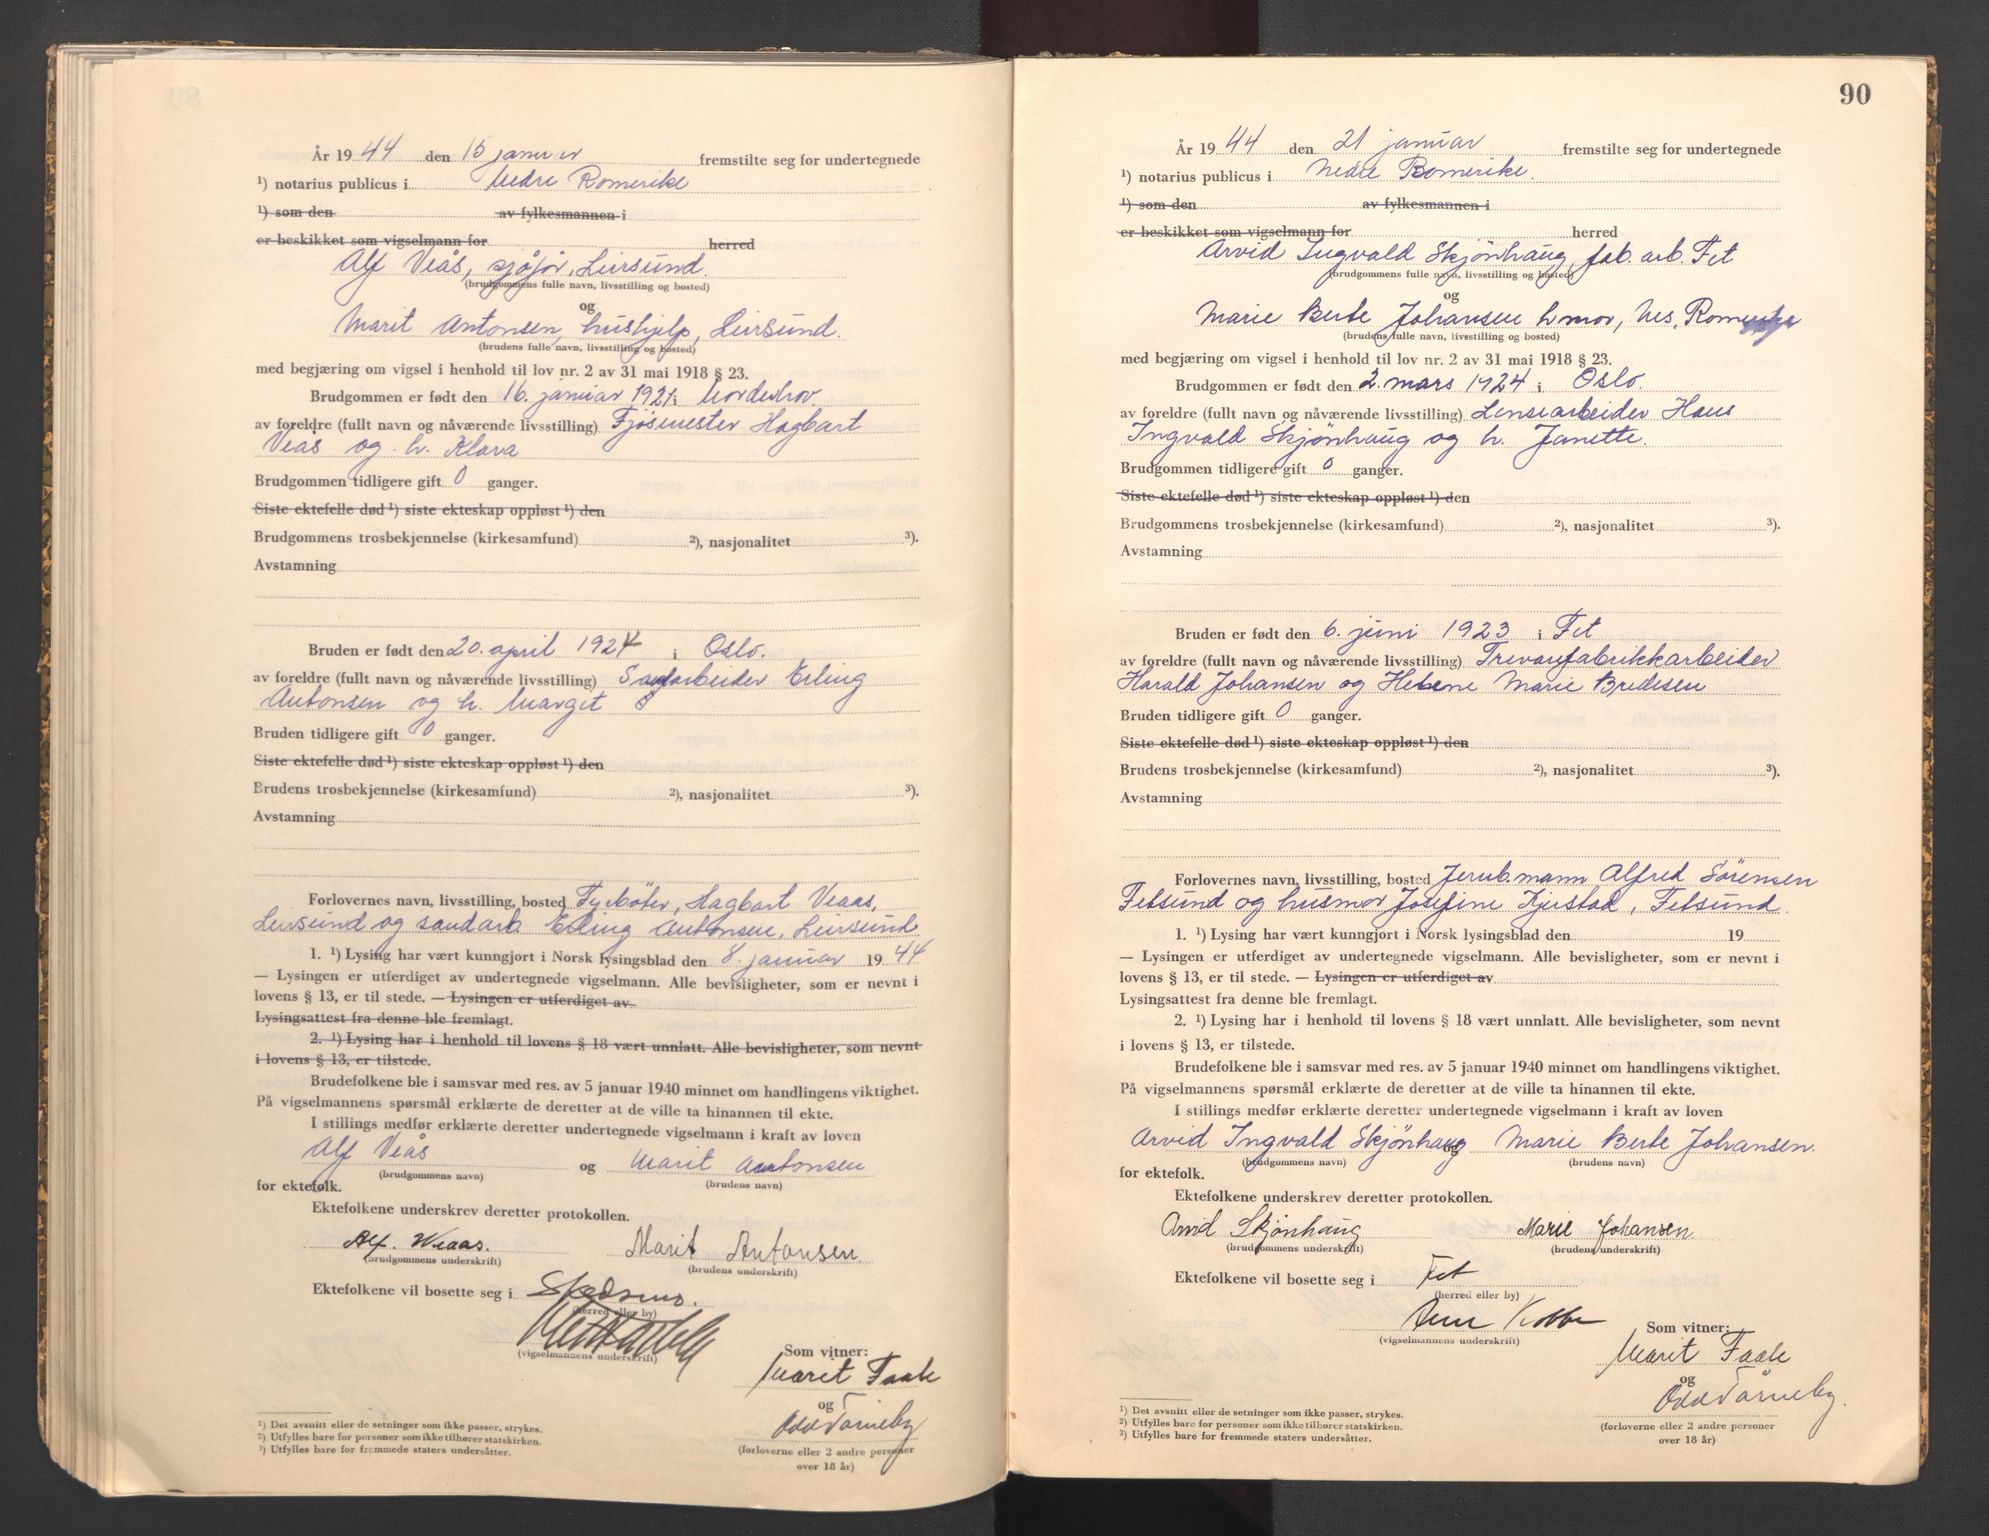 År 1944 den 15 januar fremstilte seg for undertegnede
¹) notarius publicus i Nedre Romerike
¹) som den av fylkesmannen i
er beskikket som vigselmann for herred
Alf Veås, sjåfør, Leirsund.
(brudgommens fulle navn, livsstilling og bosted)
og
Marit Antonsen, hushjelp, Leirsund.
(brudens fulle navn, livsstilling og bosted)
med begjæring om vigsel i henhold til lov nr. 2 av 31 mai 1918 § 23.
Brudgommen er født den 16. januar 1921 i Norderhov.
av foreldre (fullt navn og nåværende livsstilling) Fjøsmester Hagbart
Veås og h. Klara
Brudgommen tidligere gift 0 ganger.
Siste ektefelle død ¹) siste ekteskap oppløst ¹) den
Brudgommens trosbekjennelse (kirkesamfund) ²), nasjonalitet ³).
Avstamning
Bruden er født den 20. april 1924 i Oslo.
av foreldre (fullt navn og nåværende livsstilling) Sagarbeider Erling
Antonsen og h. Margit
Bruden tidligere gift 0 ganger.
Siste ektefelle død ¹) siste ekteskap oppløst ¹) den
Brudens trosbekjennelse (kirkesamfund) ²), nasjonalitet ³).
Avstamning
Forlovernes navn, livsstilling, bosted Hagbart Veaas,
Leirsund og sandarb. Erling Antonsen, Leirsund
1. ¹) Lysing har vært kunngjort i Norsk lysingsblad den 8. januar 1944
— Lysingen er utferdiget av undertegnede vigselmann. Alle bevisligheter, som er nevnt i
lovens § 13, er til stede. — Lysingen er utferdiget av
Lysingsattest fra denne ble fremlagt.
2. ¹) Lysing har i henhold til lovens § 18 vært unnlatt. Alle bevisligheter, som nevnt
i lovens § 13, er tilstede.
Brudefolkene ble i samsvar med res. av 5 januar 1940 minnet om handlingens viktighet.
På vigselmannens spørsmål erklærte de deretter at de ville ta hinannen til ekte.
I stillings medfør erklærte deretter undertegnede vigselmann i kraft av loven
Alf Veås og Marit Antonsen
(brudgommens navn) (brudens navn)
for ektefolk.
Ektefolkene underskrev deretter protokollen.
Alf. Weaas. Marit Antonsen.
(brudgommens underskrift) (brudens underskrift)
Ektefolkene vil bosette seg i Skedsmo.
(herred eller by)
(vigselmannens underskrift)
Som vitner:
Marit Faale
og
Odd Tårneby
(forloverne eller 2 andre personer
over 18 år)
¹) Det avsnitt eller de setninger som ikke passer, strykes.
²) Utfylles bare for personer som ikke tilhører statskirken.
³) Utfylles bare for fremmede staters undersåtter.
90
År 1944 den 21 januar fremstilte seg for undertegnede
¹) notarius publicus i Nedre Romerike.
¹) som den av fylkesmannen i
er beskikket som vigselmann for herred
Arvid Ingvald Skjönhaug, fab. arb. Fet
(brudgommens fulle navn, livsstilling og bosted)
og
Marie Berte Johansen h.mor, Nes, Romerike
(brudens fulle navn, livsstilling og bosted)
med begjæring om vigsel i henhold til lov nr. 2 av 31 mai 1918 § 23.
Brudgommen er født den 2. mars 1924 i Oslo.
av foreldre (fullt navn og nåværende livsstilling) Lensearbeider Hans
Ingvald Skjönhaug og h. Janette.
Brudgommen tidligere gift 0 ganger.
Siste ektefelle død ¹) siste ekteskap oppløst ¹) den
Brudgommens trosbekjennelse (kirkesamfund) ²), nasjonalitet ³).
Avstamning
Bruden er født den 6. juni 1923 i Fet
av foreldre (fullt navn og nåværende livsstilling) Trevarefabrikkarbeider
Harald Johansen og Helene Marie Bredesen
Bruden tidligere gift 0 ganger.
Siste ektefelle død ¹) siste ekteskap oppløst ¹) den
Brudens trosbekjennelse (kirkesamfund) ²), nasjonalitet ³).
Avstamning
Forlovernes navn, livsstilling, bosted Jernb.mann Alfred Sörensen
Fetsund og husmor Josefine Kjustad, Fetsund.
1. ¹) Lysing har vært kunngjort i Norsk lysingsblad den 19
— Lysingen er utferdiget av undertegnede vigselmann. Alle bevisligheter, som er nevnt i
lovens § 13, er til stede. — Lysingen er utferdiget av
Lysingsattest fra denne ble fremlagt.
2. ¹) Lysing har i henhold til lovens § 18 vært unnlatt. Alle bevisligheter, som nevnt
i lovens § 13, er tilstede.
Brudefolkene ble i samsvar med res. av 5 januar 1940 minnet om handlingens viktighet.
På vigselmannens spørsmål erklærte de deretter at de ville ta hinannen til ekte.
I stillings medfør erklærte deretter undertegnede vigselmann i kraft av loven
Arvid Ingvald Skjönhaug og Marie Berte Johansen.
(brudgommens navn) (brudens navn)
for ektefolk.
Ektefolkene underskrev deretter protokollen.
Arvid Skjønhaug Marie Johansen.
(brudgommens underskrift) (brudens underskrift)
Ektefolkene vil bosette seg i Fet
(herred eller by)
(vigselmannens underskrift)
Som vitner:
Marit Faale
og
Odd Tårneby.
(forloverne eller 2 andre personer
over 18 år)
¹) Det avsnitt eller de setninger som ikke passer, strykes.
²) Utfylles bare for personer som ikke tilhører statskirken.
³) Utfylles bare for fremmede staters undersåtter.